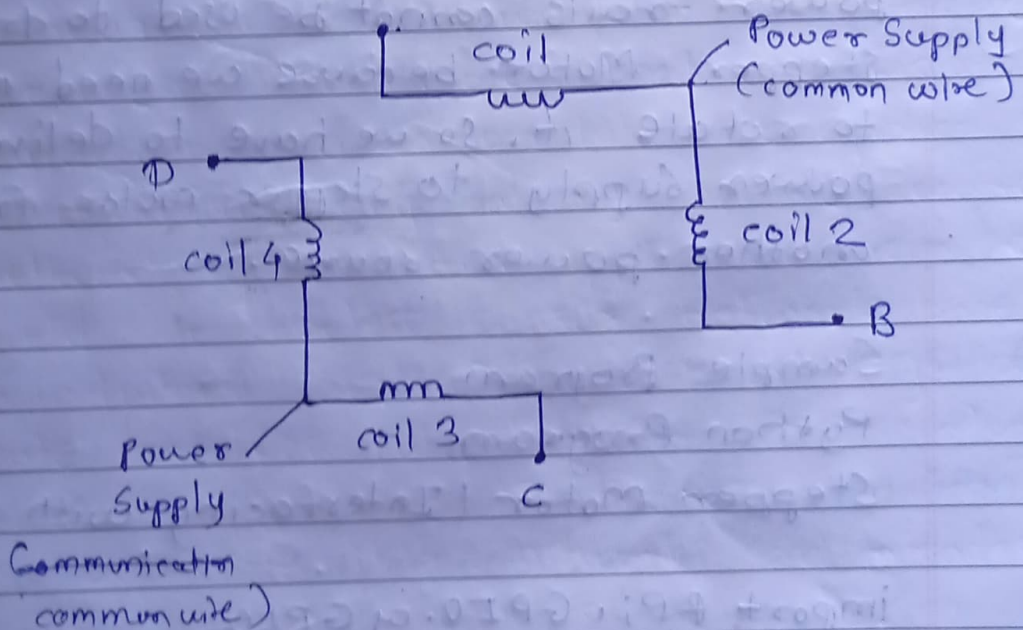 coil
Power Supply
(common wire)
D
coil 2
coil 4
B
coil 3
Power
Supply
C
Communication
common wire)